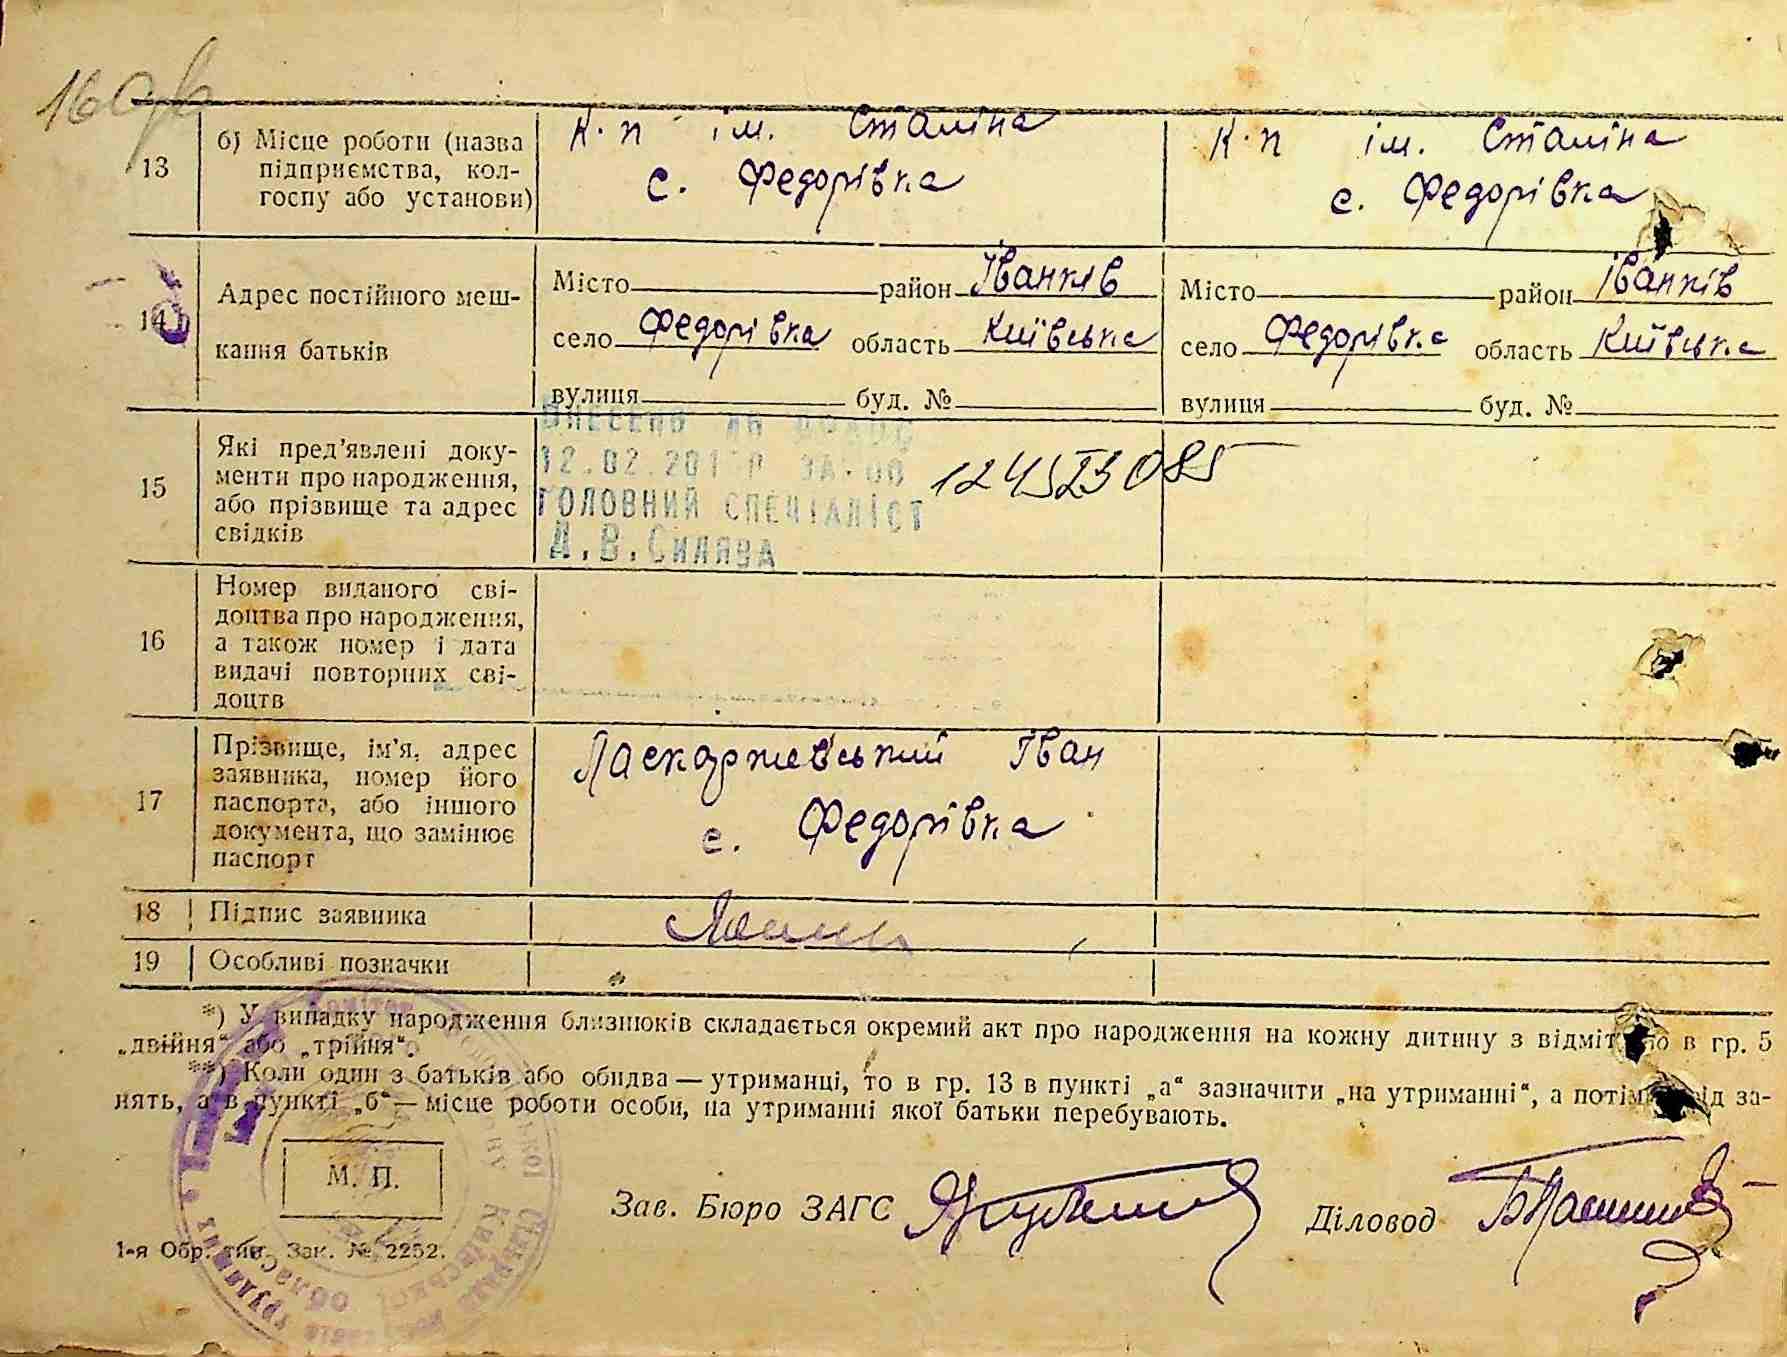 13
б) Місце роботи (назва
підприємства, кол-
госпу або установи)
к. п ім. Сталіна
с. Федорівка
к. п ім. Сталіна
с. Федорівка
14
Адрес постійного меш-
кання батьків
Місто район Іванків
село Федорівка область Київська
вулиця буд. №
Місто район Іванків
село Федорівка область Київська
вулиця буд. №
15
Які пред’явлені доку-
менти про народження,
або прізвище та адрес
свідків
ВНЕСЕНО ДО
12.02.201 Р ЗА
ГОЛОВНИЙ СПЕЦІАЛІСТ
А.В.Силява
16
Номер виданого сві-
доцтва про народження,
а також номер і дата
видачі повторних сві-
доцтв
17
Прізвище, ім’я, адрес
заявника, номер його
паспорта, або іншого
документа, що замінює
паспорт
Ласкаржевський Іван
с. Федорівка
18 Підпис заявника
19 Особливі позначки
*) У випадку народження близнюків складається окремий акт про народження на кожну дитину з відміткою в гр. 5
„двійня“ або „трійня“.
**) Коли один з батьків або обидва — утриманці, то в гр. 13 в пункті „а“ зазначити „на утриманні“, а потім рід за-
нять, а в пункті „б“ — місце роботи особи, на утриманні якої батьки перебувають.
М. П.
Зав. Бюро ЗАГС
Діловод
1-я Обр. тип. Зак. № 2252.